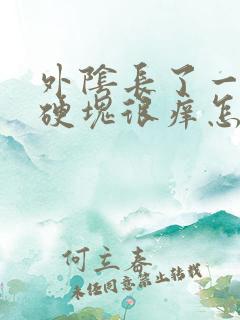 外陰長了一
硬塊很痒怎
何立春
未经同意禁止转载